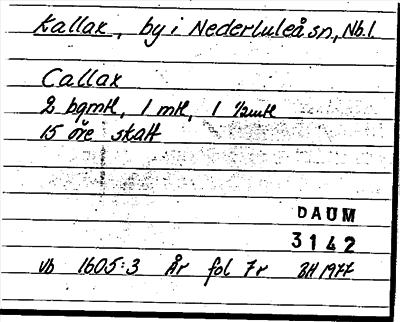 Kallax, by i Nederluleå sn, Nb.l.
Callax
2 bgmtl, 1 mtl, 1 1/2mtl
15 öre skatt
DAUM
3142
vb 1605:3 År fol 7r BH 1977